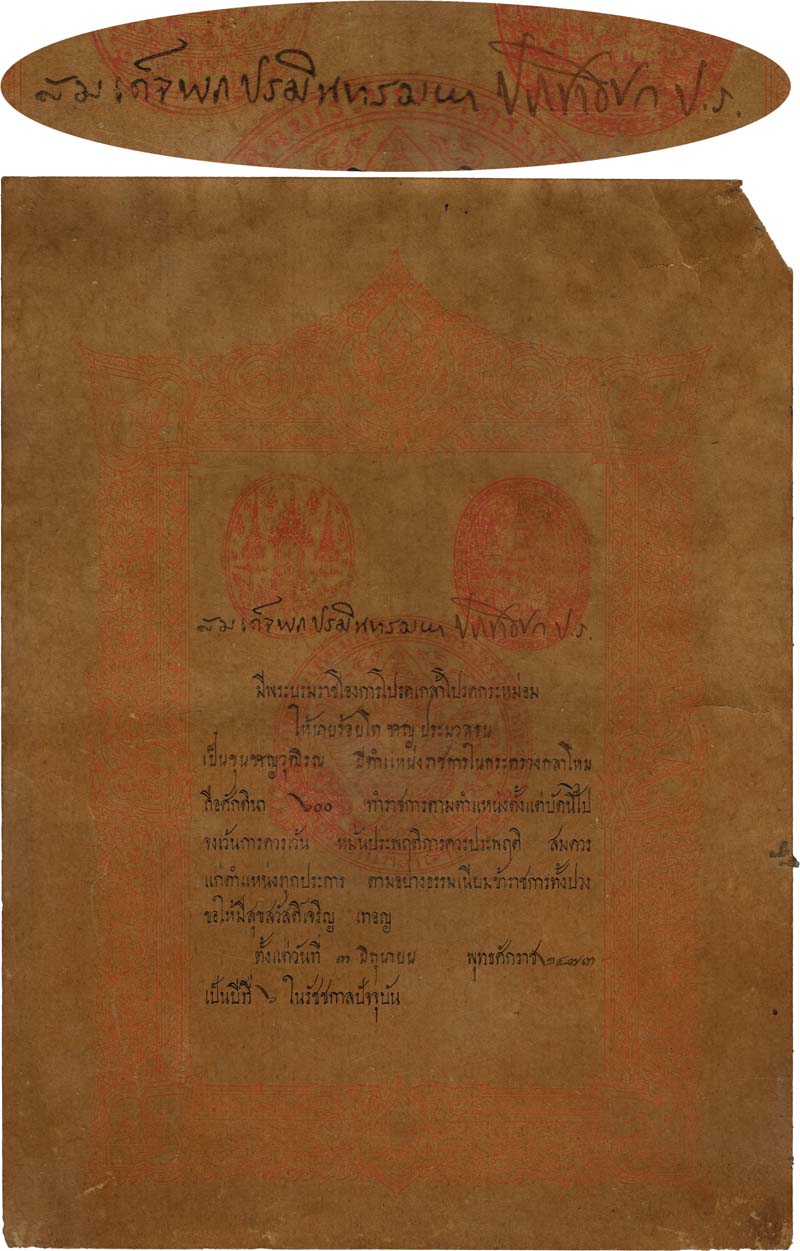 สมเด็จพระปรมินทรมหา ประชาธิปก ป.ร.
สมเด็จพระปรมินทรมหา ประชาธิปก ป.ร.
มีพระบรมราชโองการโปรดเกล้าโปรดกระหม่อม
ให้นายร้อยโท ชาญ
เป็นขุนชาญวุฒิรณ มีตำแหน่งราชการในกระทรวงกลาโหม
ถือศักดินา ๖๐๐ ทำราชการตามตำแหน่งตั้งแต่บัดนี้ไป
จงเว้นการควรเว้น หมั่นประพฤติการควรประพฤติ สมควร
แก่ตำแหน่งทุกประการ ตามอย่างธรรมเนียมข้าราชการทั้งปวง
ขอให้มีสุขสวัสดิ์เจริญ เทอญ
ตั้งแต่วันที่ ๓ มิถุนายน พุทธศักราช ๒๔๗๓
เป็นปีที่ ๖ ในรัชชกาลปัจจุบัน